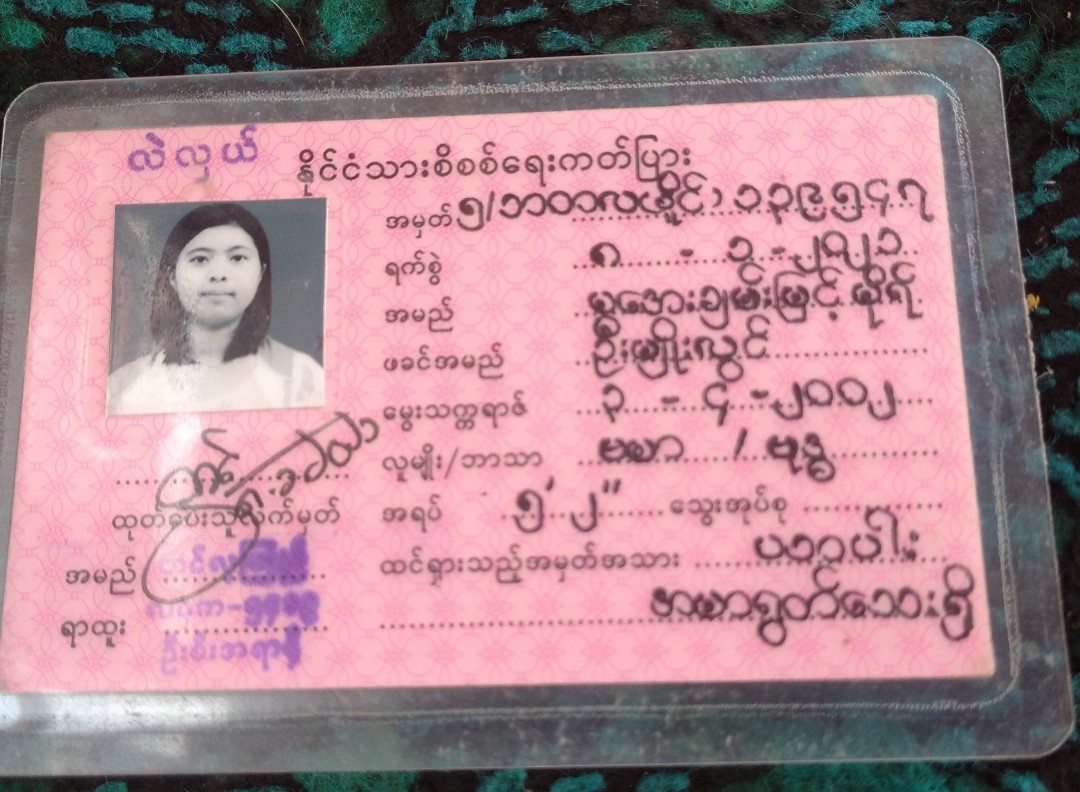 လဲလှယ်
နိုင်ငံသားစိစစ်ရေးကတ်ပြား
အမှတ် ၅/ဘတလ(နိုင်) ၁၃၉၅၄၇
ရက်စွဲ ၈ - ၁ - ၂၀၂၁
အမည် မအေးချမ်းမြင့်မိုရ်
ဖခင်အမည် ဦးမျိုးလွင်
မွေးသက္ကရာဇ် ၃ - ၄ - ၂၀၀၂
လူမျိုး/ဘာသာ ဗမာ / ဗုဒ္ဓ
အရပ် ၅' ၂" သွေးအုပ်စု
ထင်ရှားသည့်အမှတ်အသား ပါး
အမာရွတ်သေးရှိ
ထုတ်ပေးသူလက်မှတ်
အမည်
ရာထူး
ဦးစီးအရာရှိ